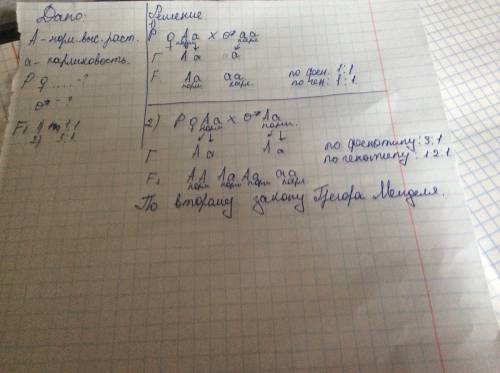 Дано:
А - норм. выс. раст.
а - карликовость.
Р ♀ .... - ?
♂ - ?
F₁ 1) 1:1
2) 3:1
Решение
1)
Р ♀ Аа х ♂ аа
норм карл.
Г А а а
F Аа аа по фен. 1:1
норм. карл. по ген: 1:1
2) Р ♀ Аа х ♂ Аа
норм норм.
Г А а А а по фенотипу: 3:1
по генотипу: 1:2:1
F₁ АА Аа Аа аа
норм норм норм карл.
По второму закону Грегора Менделя.